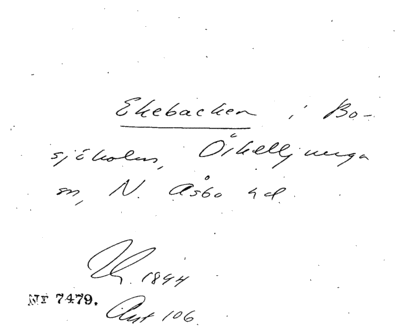 Ekebacken i Bo-
sjöholm, Örkelljunga
sn, N. Åsbo hd.
Th. 1894
Nr 7479.
Ant 106.